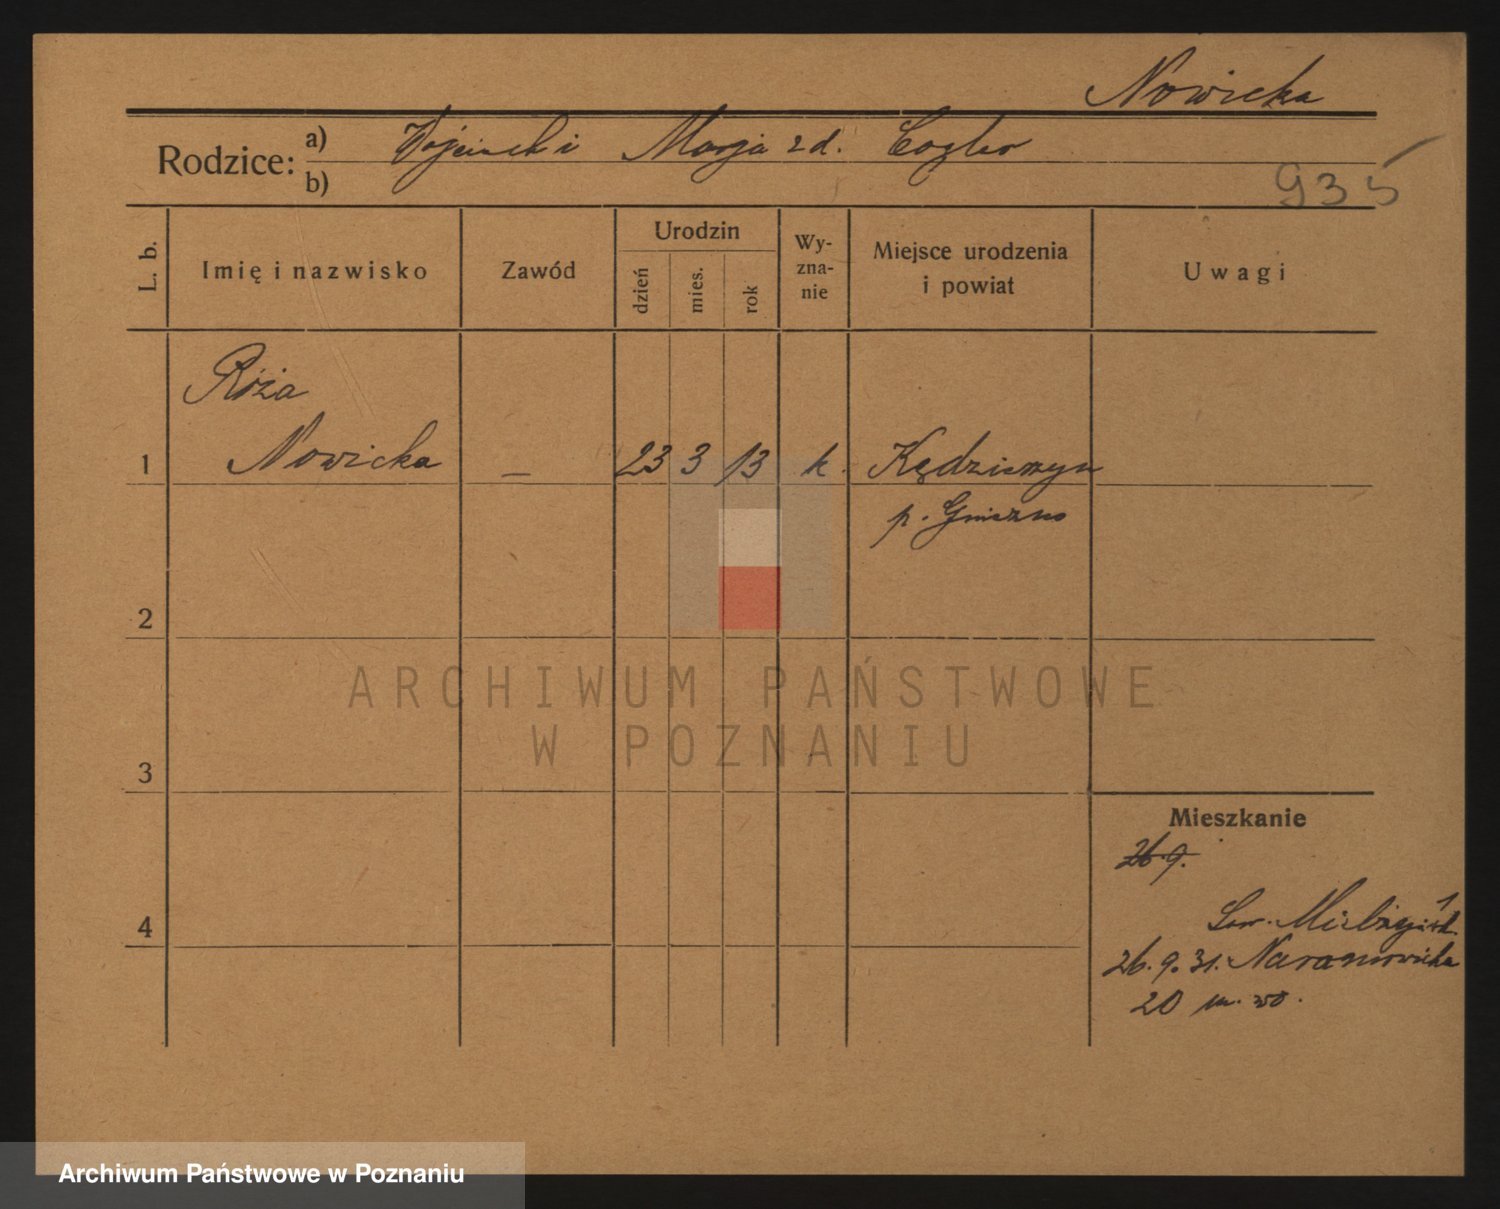 Nowicka
Rodzice: a) Wojciech i Marja zd.
b)
935
L. b.
Imię i nazwisko
Zawód
Urodzin
dzień
mies.
rok
Wy-
zna-
nie
Miejsce urodzenia
i powiat
Uwagi
Róża
1 Nowicka — 23 3 13 k. Kędzierzyn
p. Gniezno
2
ARCHIWUM PAŃSTWOWE
W POZNANIU
3
Mieszkanie
26.9.
4
26.9.31. Naramowicka
20 m.
Archiwum Państwowe w Poznaniu